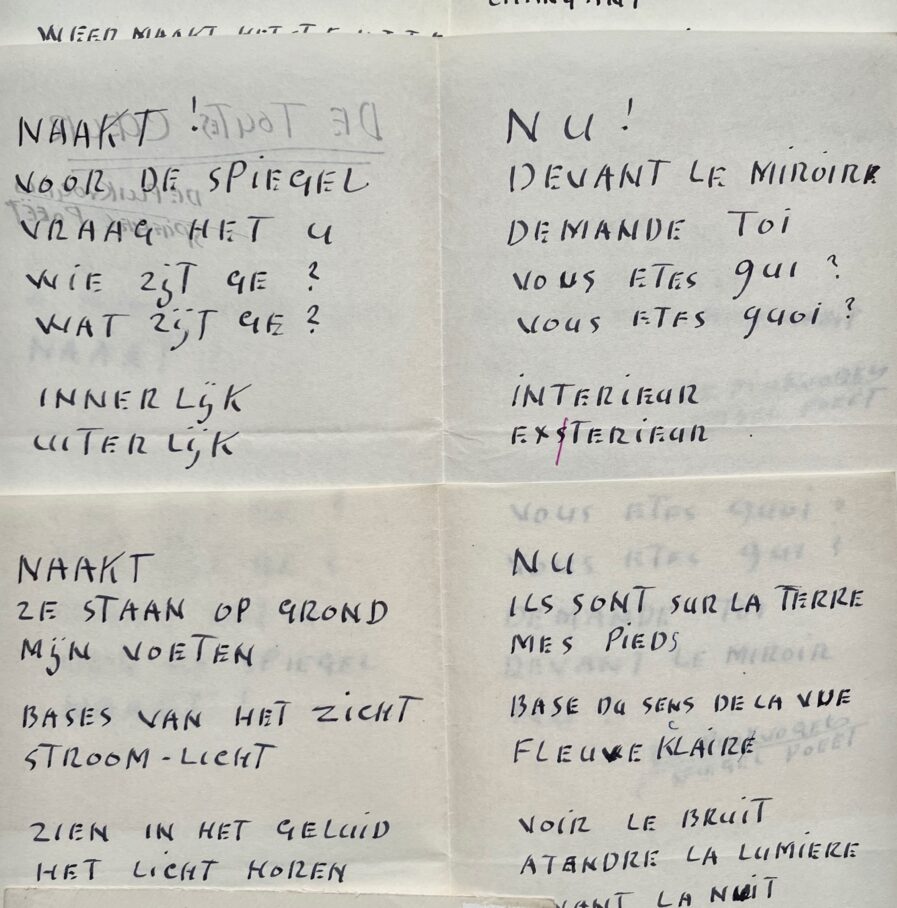 WEER MAAKT HET
CHANGANT
NAAKT !
VOOR DE SPIEGEL
VRAAG HET U
WIE ZIJT GE ?
WAT ZIJT GE ?
INNERLIJK
UITERLIJK
NU !
DEVANT LE MIROIRE
DEMANDE TOI
VOUS ETES QUI ?
VOUS ETES QUOI ?
INTERIEUR
EXSTERIEUR
NAAKT
ZE STAAN OP GROND
MIJN VOETEN
BASES VAN HET ZICHT
STROOM-LICHT
ZIEN IN HET GELUID
HET LICHT HOREN
NU
ILS SONT SUR LA TERRE
MES PIEDS
BASE DU SENS DE LA VUE
FLEUVE KLAIRE
VOIR LE BRUIT
ATENDRE LA LUMIERE
LA NUIT